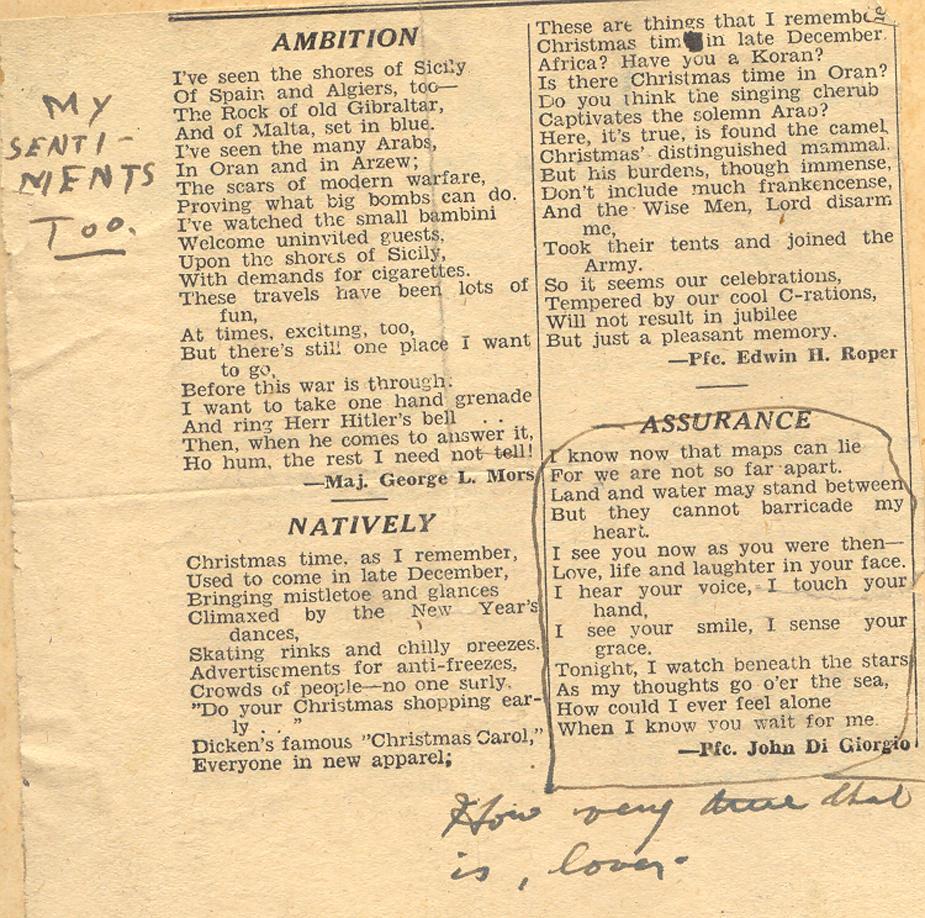 MY
SENTI-
MENTS
TOO.
AMBITION
I've seen the shores of Sicily
Of Spain and Algiers, too—
The Rock of old Gibraltar,
And of Malta, set in blue.
I've seen the many Arabs,
In Oran and in Arzew;
The scars of modern warfare,
Proving what big bombs can do.
I've watched the small bambini
Welcome uninvited guests,
Upon the shores of Sicily,
With demands for cigarettes.
These travels have been lots of
fun,
At times, exciting, too,
But there's still one place I want
to go,
Before this war is through.
I want to take one hand grenade
And ring Herr Hitler's bell . .
Then, when he comes to answer it,
Ho hum, the rest I need not tell!
—Maj. George L. Mors
NATIVELY
Christmas time, as I remember,
Used to come in late December,
Bringing mistletoe and glances
Climaxed by the New Year's
dances,
Skating rinks and chilly breezes.
Advertisements for anti-freezes,
Crowds of people—no one surly.
"Do your Christmas shopping ear-
ly . . "
Dicken's famous "Christmas Carol,"
Everyone in new apparel;
These are things that I remember
Christmas time in late December.
Africa? Have you a Koran?
Is there Christmas time in Oran?
Do you think the singing cherub
Captivates the solemn Arab?
Here, it's true, is found the camel,
Christmas' distinguished mammal.
But his burdens, though immense,
Don't include much frankencense,
And the Wise Men, Lord disarm
me,
Took their tents and joined the
Army.
So it seems our celebrations,
Tempered by our cool C-rations,
Will not result in jubilee
But just a pleasant memory.
—Pfc. Edwin H. Roper
ASSURANCE
I know now that maps can lie
For we are not so far apart.
Land and water may stand between
But they cannot barricade my
heart.
I see you now as you were then—
Love, life and laughter in your face.
I hear your voice, I touch your
hand,
I see your smile, I sense your
grace.
Tonight, I watch beneath the stars
As my thoughts go o'er the sea,
How could I ever feel alone
When I know you wait for me.
—Pfc. John Di Giorgio
How very true that
is, lover.